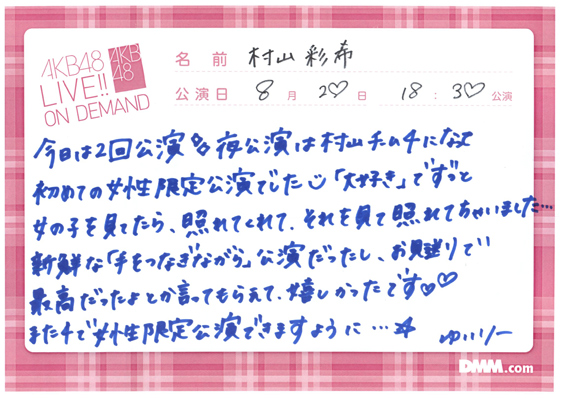 AKB48
LIVE!!
ON DEMAND
AKB
48
名前 村山彩希
公演日 8月 20日 18:30公演
今日は2回公演 夜公演は村山チーム4になって
初めての女性限定公演でした 「大好き」でずっと
女の子を見てたら、照れてくれて、それを見て照れてちゃいました…
新鮮な「手をつなぎながら」公演だったし、お見送りで
最高だったよとか言ってもらえて、嬉しかったです♡♡
また4で女性限定公演できますように…☆
ゆいりー
DMM.com